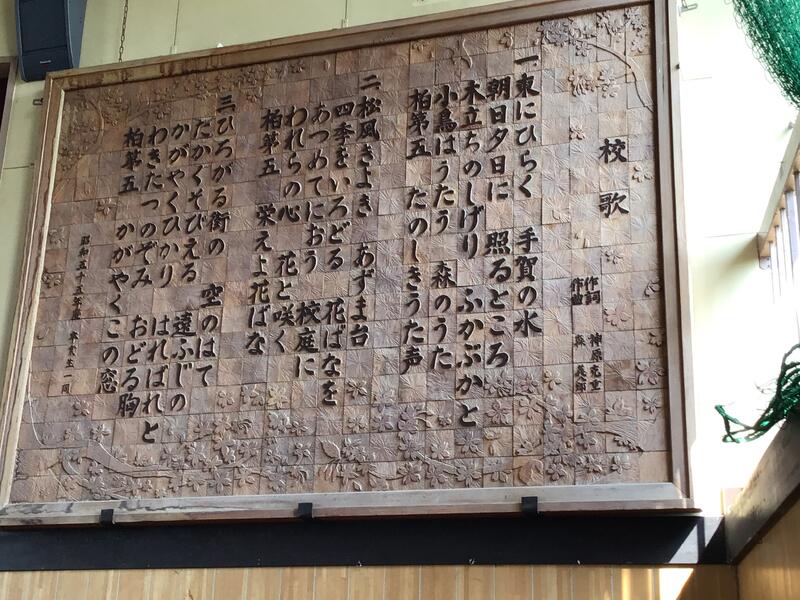 校歌
作詞 神原克重
作曲 呉
一 東にひらく 手賀の水
朝日夕日に 照るところ
木立ちのしげり ふかぶかと
小鳥はうたう 森のうた
柏第五 たのしきうた声
二 松風きよき あずま台
四季をいろどる 花ばなを
あつめてにおう 校庭に
われらの心 花と咲く
柏第五 栄えよ花ばな
三 ひろがる街の 空のはて
たかくそびえる 遠ふじの
かがやくひかり はればれと
わきたつのぞみ おどる胸
柏第五 かがやくこの窓
昭和五十五年度 卒業生一同